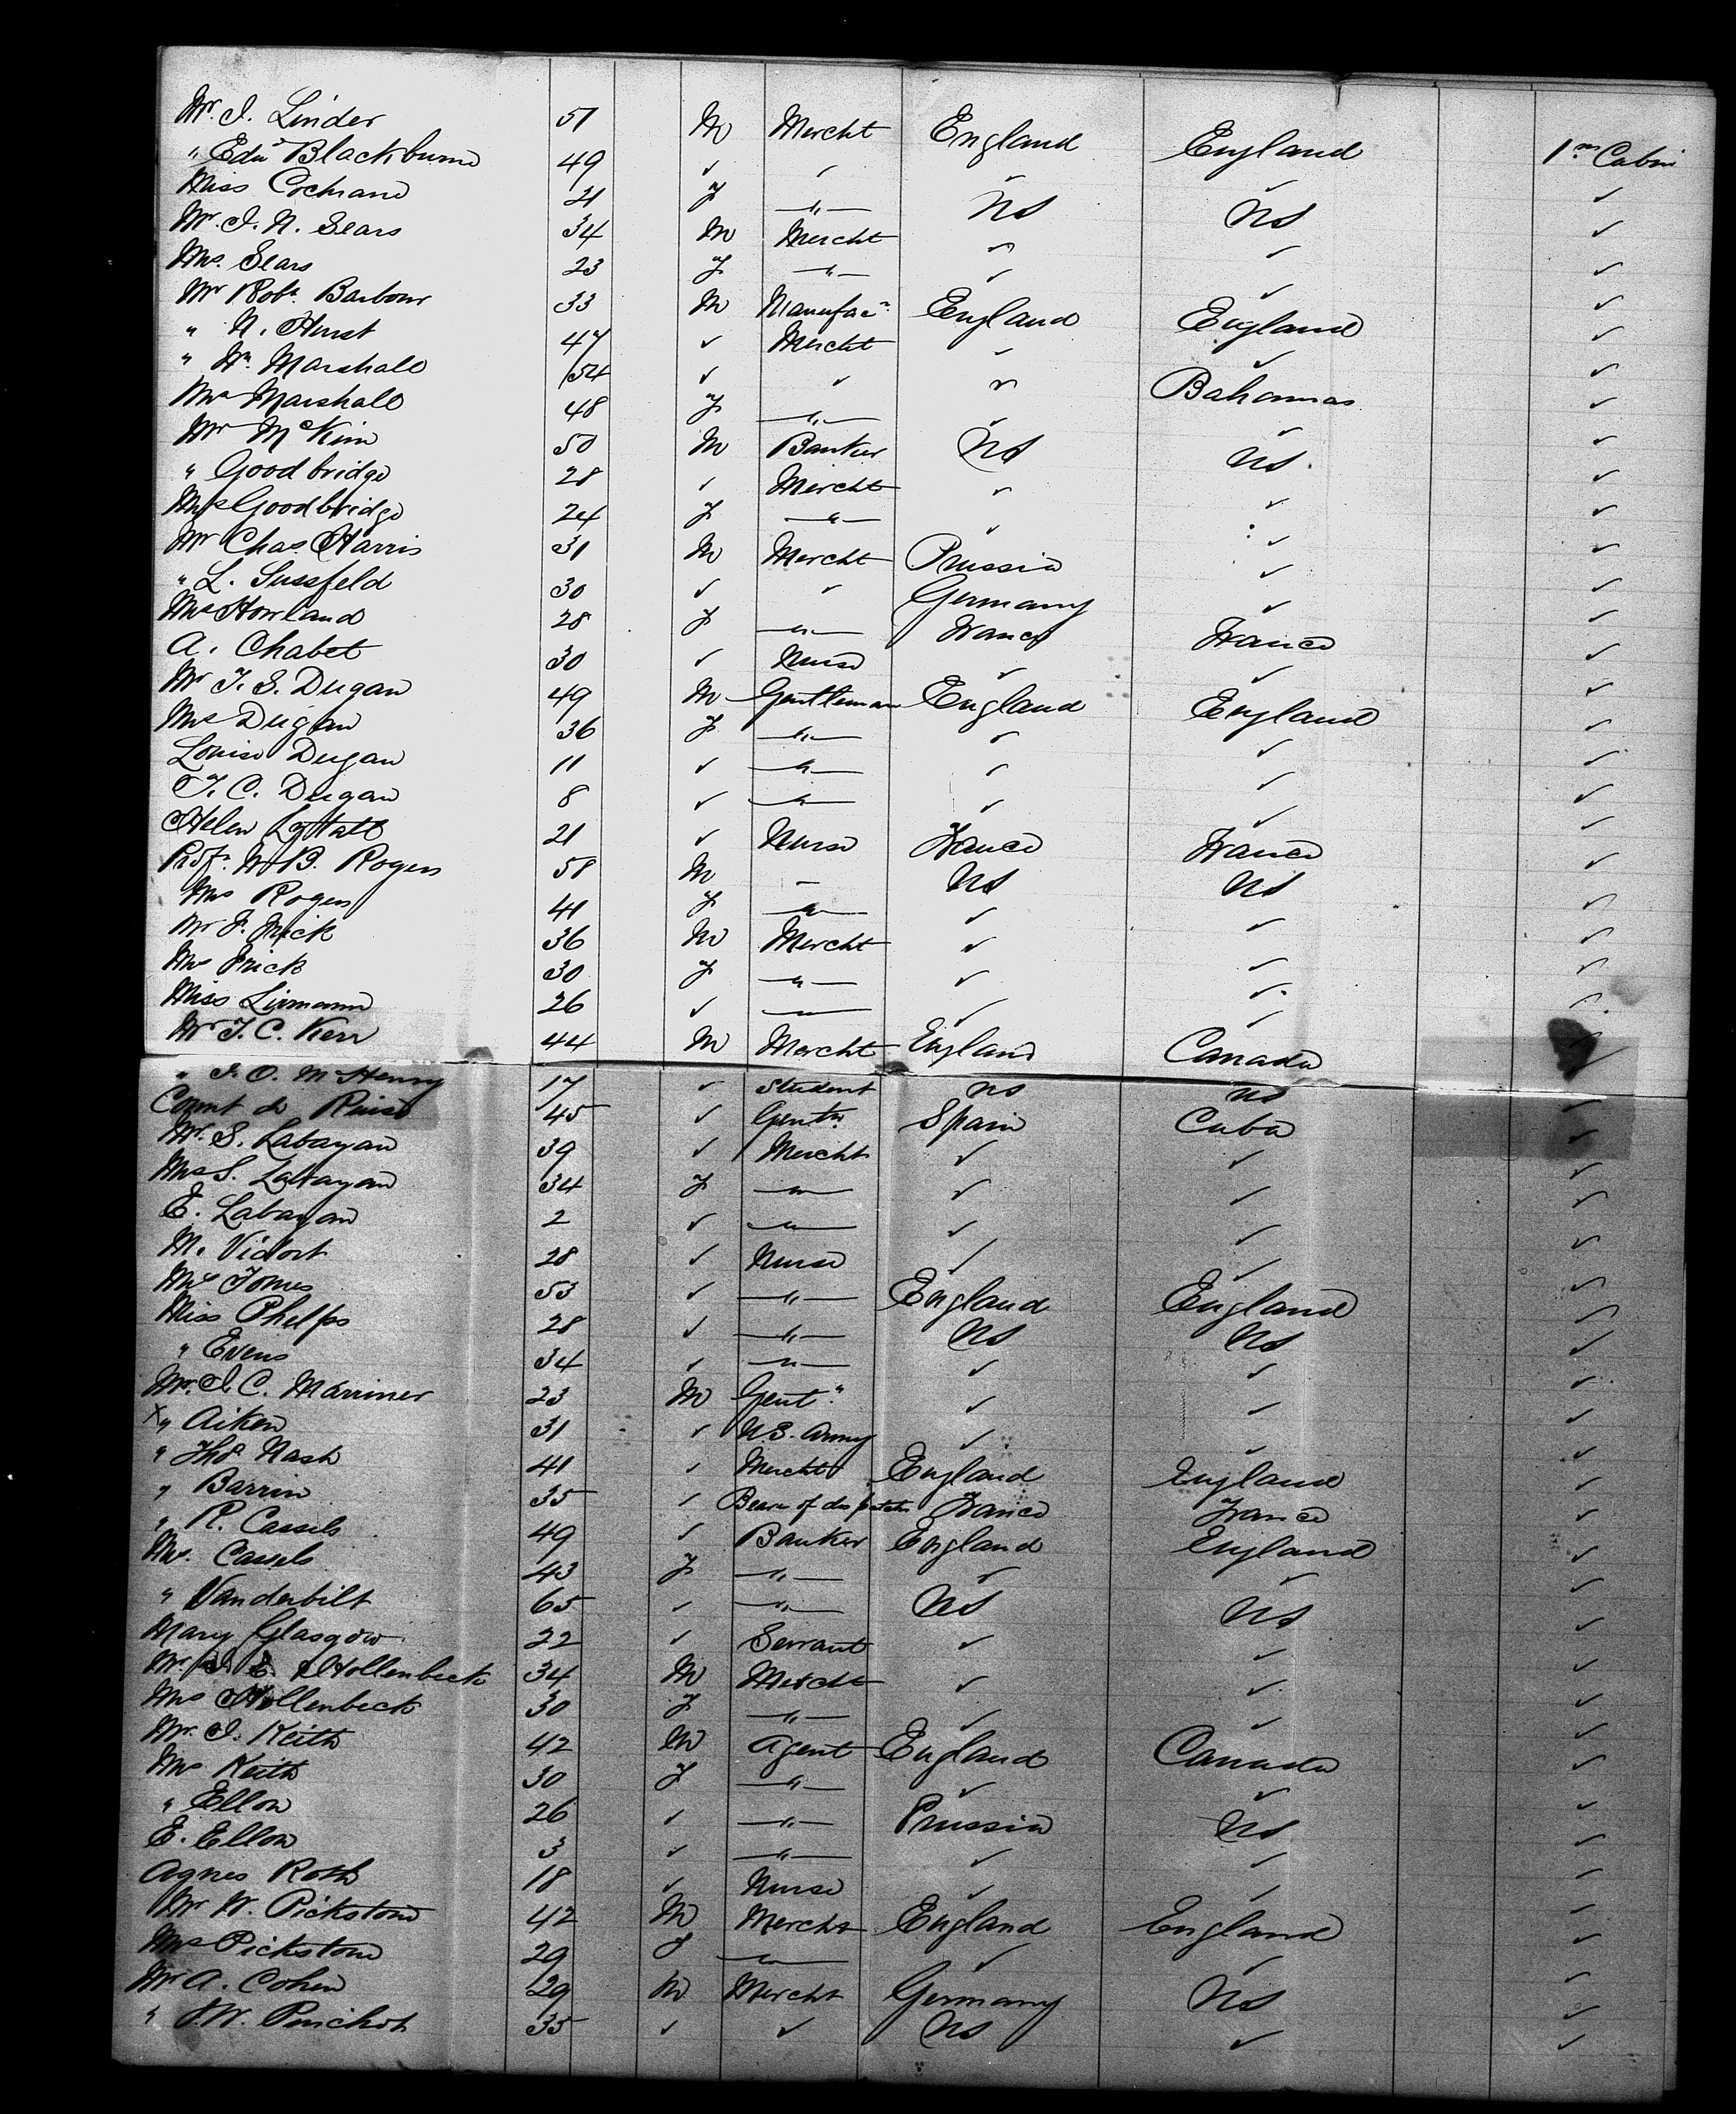 Mr. I. Linder 51 M Mercht England England 1st Cabin
" Edwd Blackburne 49 ✓ ✓ ✓ ✓ ✓
Miss Cochrane 21 F —"— US US ✓
Mr. I. N. Sears 34 M Mercht ✓ ✓ ✓
Mrs. Sears 23 F —"— ✓ ✓ ✓
Mr Robt. Barbour 33 M Manufacr England England ✓
" N. Hurst 47 ✓ Mercht ✓ ✓ ✓
" Wm. Marshall 54 ✓ ✓ ✓ Bahamas ✓
Mrs Marshall 48 F —"— ✓ ✓ ✓
Mr McKim 50 M Banker US US ✓
" Goodbridge 28 ✓ Mercht ✓ ✓ ✓
Mrs Goodbridge 24 F —"— ✓ ✓ ✓
Mr Chas. Harris 31 M Mercht Prussia ✓ ✓
" L. Sussfeld 30 ✓ ✓ Germany ✓ ✓
Mrs Howland 28 F —"— France France ✓
A. Chabet 30 ✓ Nurse ✓ ✓ ✓
Mr T. S. Dugan 49 M Gentleman England England ✓
Mrs Dugan 36 F —"— ✓ ✓ ✓
Louise Dugan 11 ✓ —"— ✓ ✓ ✓
T. C. Dugan 8 ✓ —"— ✓ ✓ ✓
Helen 21 ✓ Nurse France France ✓
Profr. W. B. Rogers 58 M — US US ✓
Mrs Rogers 41 F —"— ✓ ✓ ✓
Mr F. Frick 36 M Mercht ✓ ✓ ✓
Mrs Frick 30 F —"— ✓ ✓ ✓
Miss Lirmann 26 ✓ —"— ✓ ✓ ✓
Mr T. C. Kerr 44 M Mercht England Canada ✓
" I. O. McHenry 17 ✓ Student US US ✓
Count de 45 ✓ Gentn. Spain Cuba ✓
Mr. S. Labayan 39 ✓ Mercht ✓ ✓ ✓
Mrs S. Labayan 34 F —"— ✓ ✓ ✓
E. Labayan 2 ✓ —"— ✓ ✓ ✓
M. Vidort 28 ✓ Nurse ✓ ✓ ✓
Mrs Tomes 53 ✓ —"— England England ✓
Miss Phelps 28 ✓ —"— US US ✓
" Evens 34 ✓ —"— ✓ ✓ ✓
Mr. I. C. Marriner 23 M Gent" ✓ ✓ ✓
x " Aiken 31 ✓ U.S. Army ✓ ✓ ✓
" Thos Nash 41 ✓ Mercht England England ✓
" Barrin 35 ✓ Bearer of despatches France France ✓
" R. Cassels 49 ✓ Banker England England ✓
Mrs. Cassels 43 F —"— ✓ ✓ ✓
" Vanderbilt 65 ✓ —"— US US ✓
Mary Glasgow 22 ✓ Servant ✓ ✓ ✓
Mr. I. E. Hollenbeck 34 M Mercht ✓ ✓ ✓
Mrs Hollenbeck 30 F —"— ✓ ✓ ✓
Mr. I. Keith 42 M Agent England Canada ✓
Mrs Keith 30 F —"— ✓ ✓ ✓
" Ellon 26 ✓ —"— Prussia US ✓
E. Ellon 3 ✓ —"— ✓ ✓ ✓
Agnes Roth 18 ✓ Nurse ✓ ✓ ✓
Mr W. Pickstone 42 M Mercht England England ✓
Mrs Pickstone 29 F —"— ✓ ✓ ✓
Mr A. Cohen 29 M Mercht Germany US ✓
" J. W. Pinchot 35 ✓ ✓ US ✓ ✓